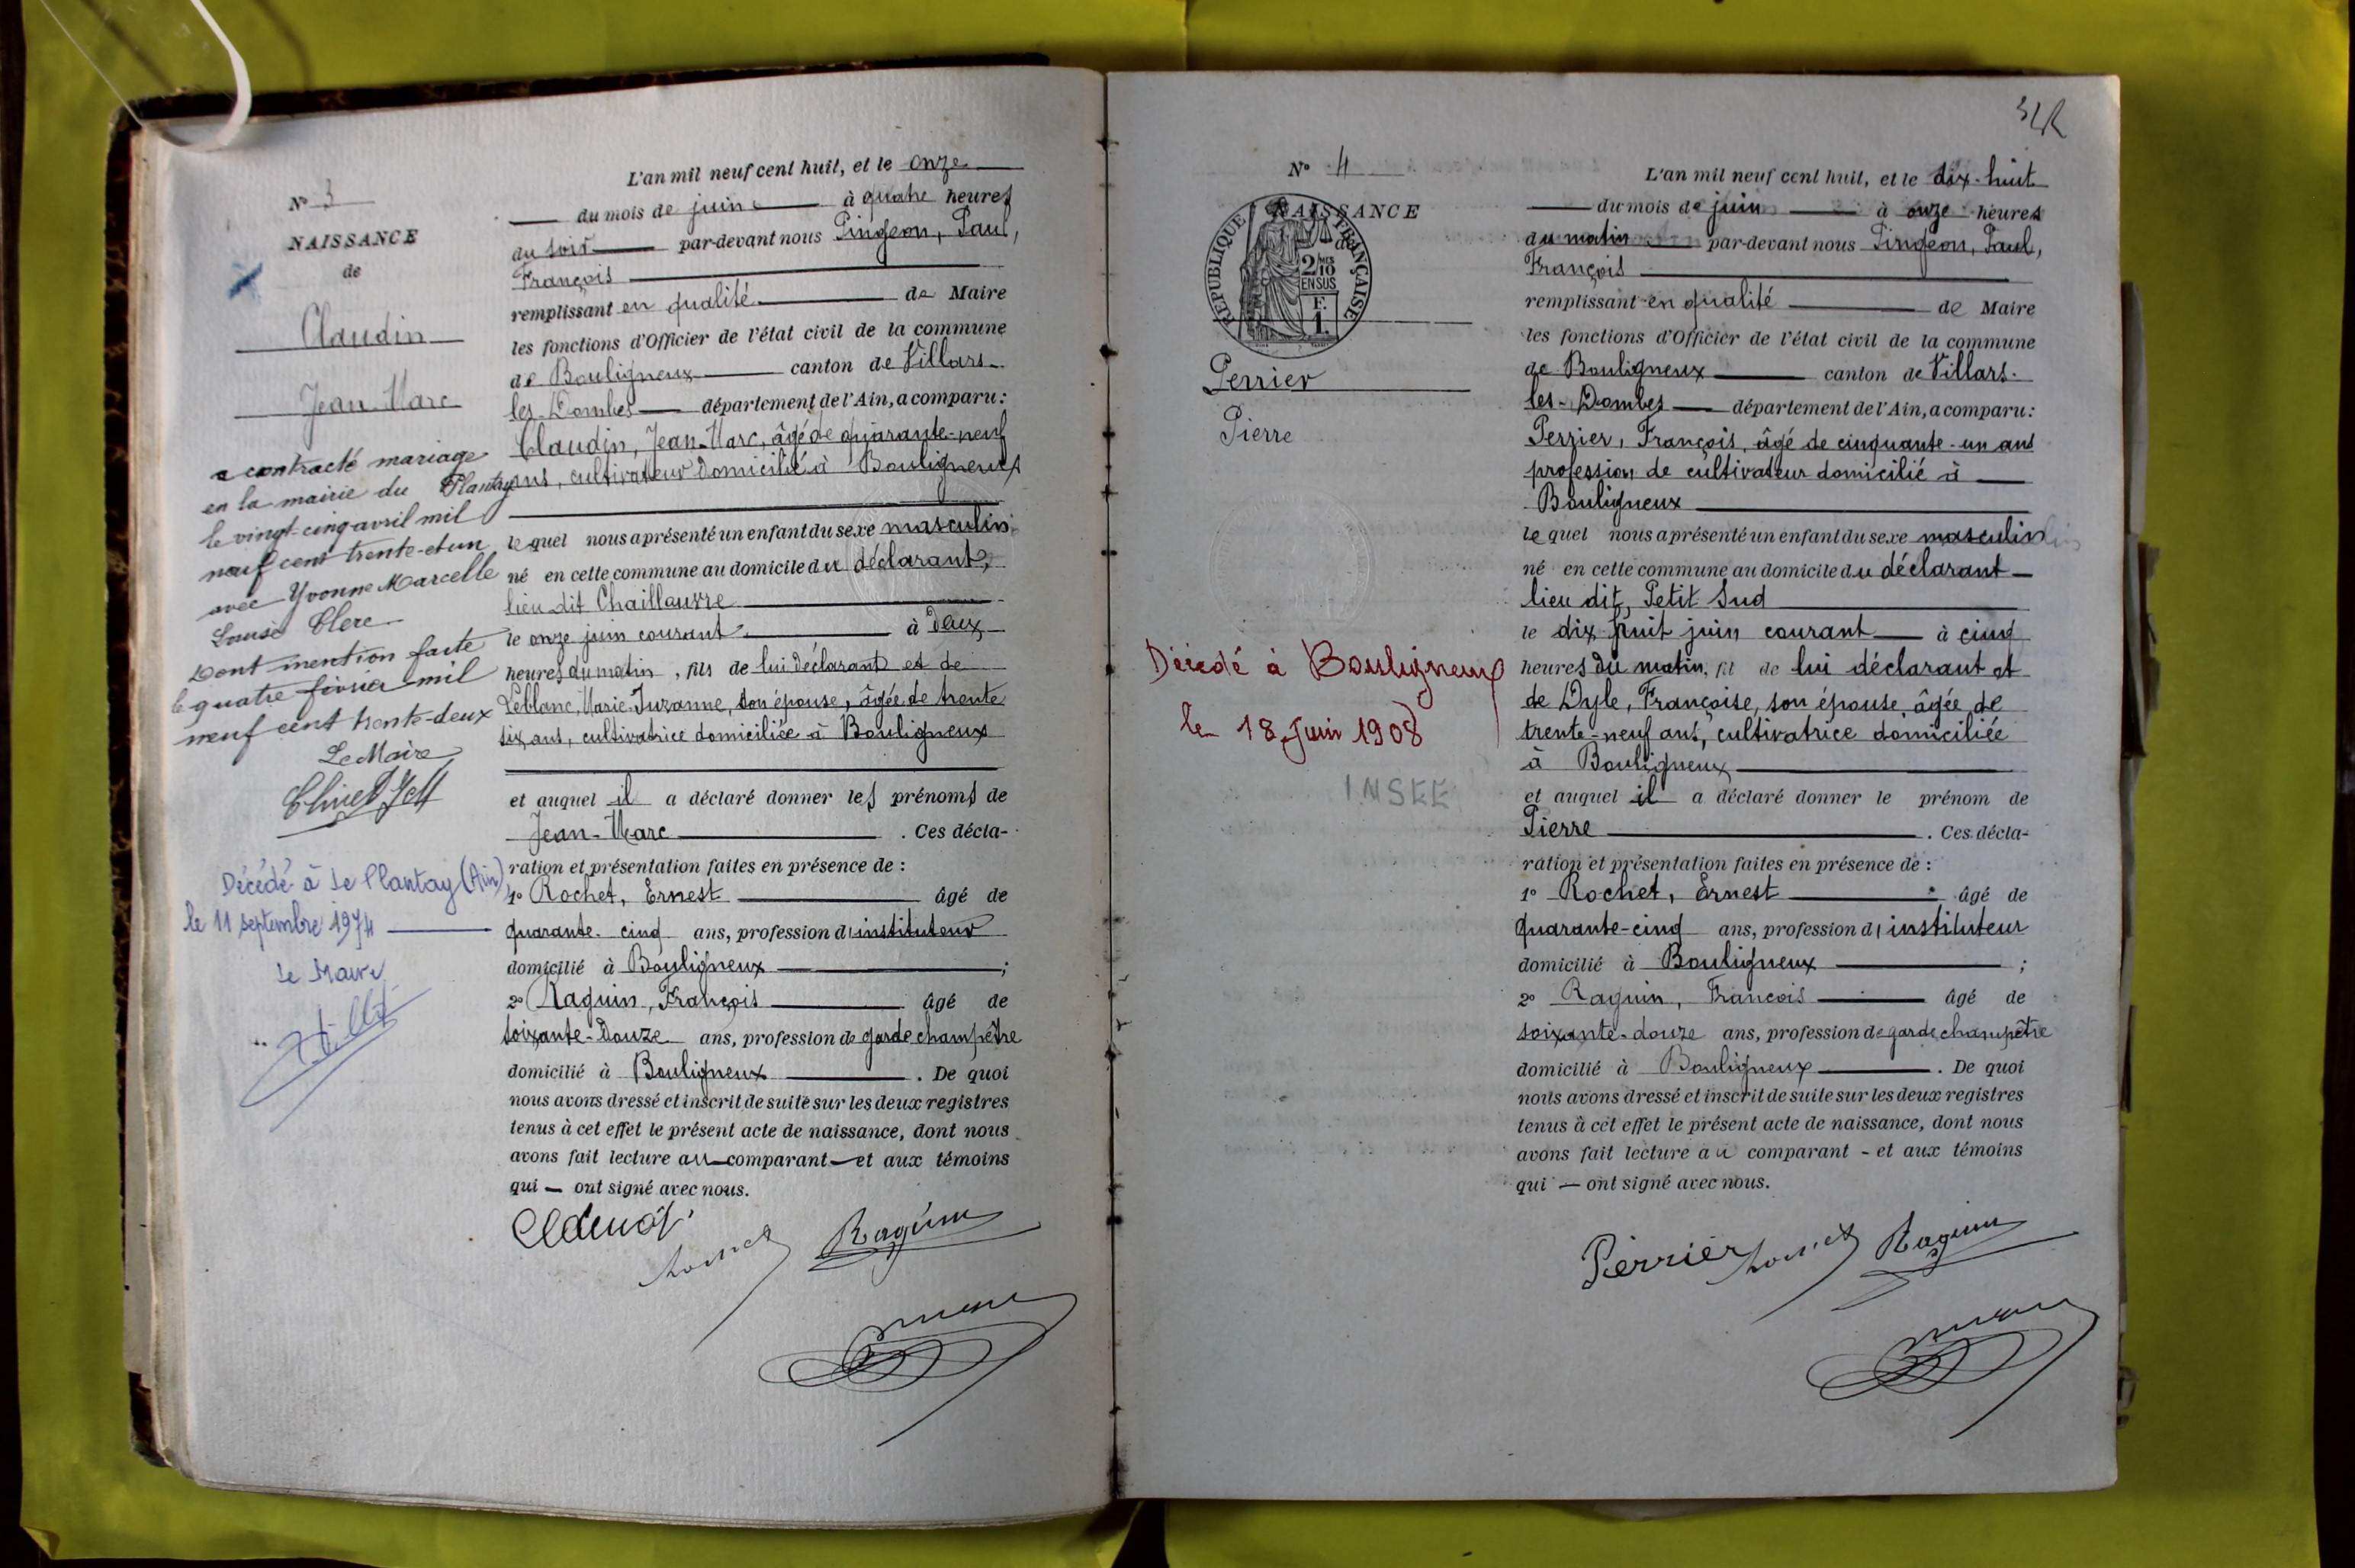 N° 3
NAISSANCE
de
Claudin
Jean-Marc
a contracté mariage
en la mairie du Plantay
le vingt-cinq avril mil
neuf cent trente-et un
avec Yvonne Marcelle
Louise Clerc
Dont mention faite
le quatre février mil
neuf cent trente-deux
Le Maire
Décédé à Le Plantay (Ain)
le 11 septembre 1974
Le Maire
L'an mil neuf cent huit, et le onze
du mois de juin à quatre heures
du soir par-devant nous Pingeon, Paul,
François
remplissant en qualité de Maire
les fonctions d'Officier de l'état civil de la commune
de Bouligneux canton de Villars-
les-Dombes département de l'Ain, a comparu :
Claudin, Jean-Marc, âgé de quarante-neuf
ans, cultivateur domicilié à Bouligneux
le quel nous a présenté un enfant du sexe masculin
né en cette commune au domicile du déclarant,
lieu dit Chaillouvre
le onze juin courant à deux
heures du matin, fils de lui déclarant et de
Leblanc, Marie-Suzanne, son épouse, âgée de trente
six ans, cultivatrice domiciliée à Bouligneux
et auquel il a déclaré donner les prénoms de
Jean-Marc . Ces décla-
ration et présentation faites en présence de :
1° Rochet, Ernest âgé de
quarante-cinq ans, profession d'instituteur
domicilié à Bouligneux ;
2° Raguin, François âgé de
soixante-douze ans, profession de garde champêtre
domicilié à Bouligneux . De quoi
nous avons dressé et inscrit de suite sur les deux registres
tenus à cet effet le présent acte de naissance, dont nous
avons fait lecture au comparant et aux témoins
qui — ont signé avec nous.
Rochet Raguin
N° 4
NAISSANCE
de
REPUBLIQUE FRANÇAISE
2/10 MES
EN SUS
F.
1.
Perrier
Pierre
Décédé à Bouligneux
le 18 Juin 1908
INSEE
L'an mil neuf cent huit, et le dix-huit
du mois de juin à onze heures
du matin par-devant nous Pingeon, Paul,
François
remplissant en qualité de Maire
les fonctions d'Officier de l'état civil de la commune
de Bouligneux canton de Villars-
les-Dombes département de l'Ain, a comparu :
Perrier, François, âgé de cinquante-un ans
profession de cultivateur domicilié à
Bouligneux
le quel nous a présenté un enfant du sexe masculin
né en cette commune au domicile du déclarant
lieu dit, Petit Sud
le dix-huit juin courant à cinq
heures du matin, fil de lui déclarant et
de Dyle, Françoise, son épouse, âgée de
trente-neuf ans, cultivatrice domiciliée
à Bouligneux
et auquel il a déclaré donner le prénom de
Pierre . Ces décla-
ration et présentation faites en présence de :
1° Rochet, Ernest âgé de
quarante-cinq ans, profession d'instituteur
domicilié à Bouligneux ;
2° Raguin, Francois âgé de
soixante-douze ans, profession de garde champêtre
domicilié à Bouligneux . De quoi
nous avons dressé et inscrit de suite sur les deux registres
tenus à cet effet le présent acte de naissance, dont nous
avons fait lecture au comparant - et aux témoins
qui — ont signé avec nous.
Perrier Rochet Raguin